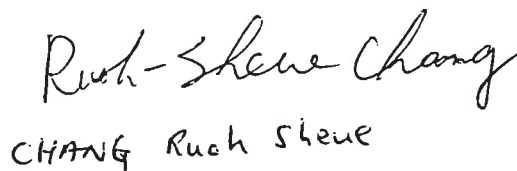 Rueh-Sheue Chang
CHANG Rueh Sheue